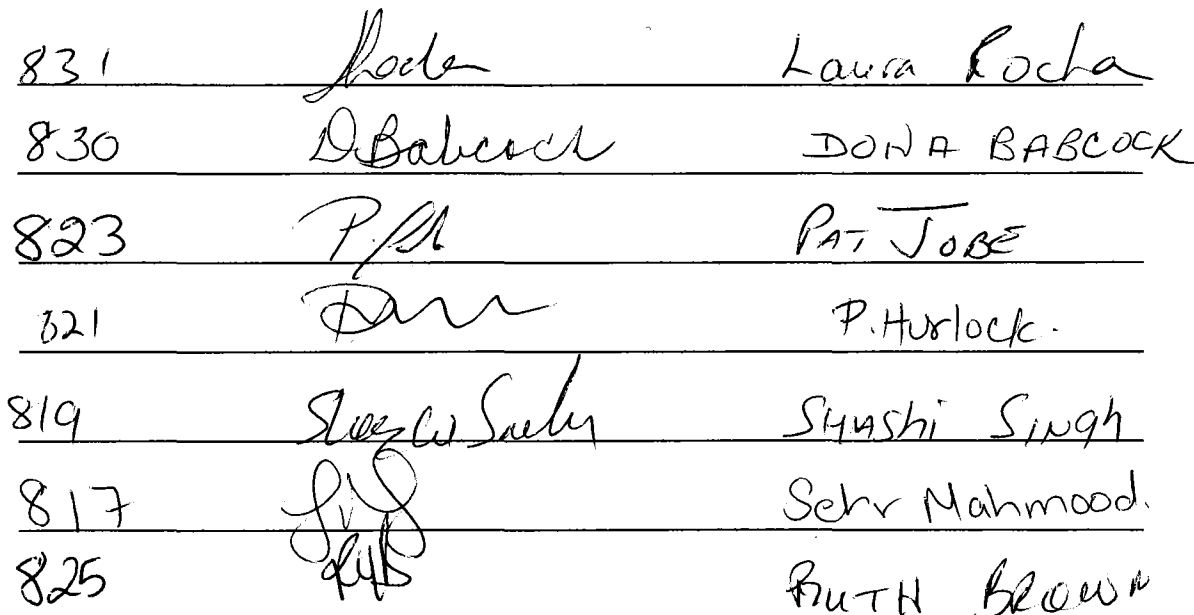 831 Laura Rocha
830 D.Babcock DONA BABCOCK
823 PAT JOBE
821 P.Hurlock.
819 SHASHi SiNgh
817 Sehr Mahmood.
825 RUTH BROWN